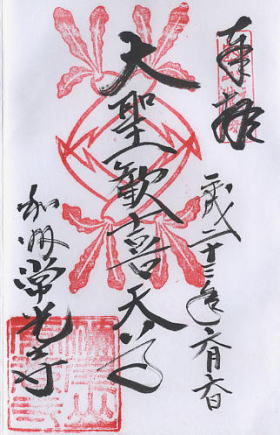 奉拝
平成二十三年六月六日
大聖歓喜天
常光寺